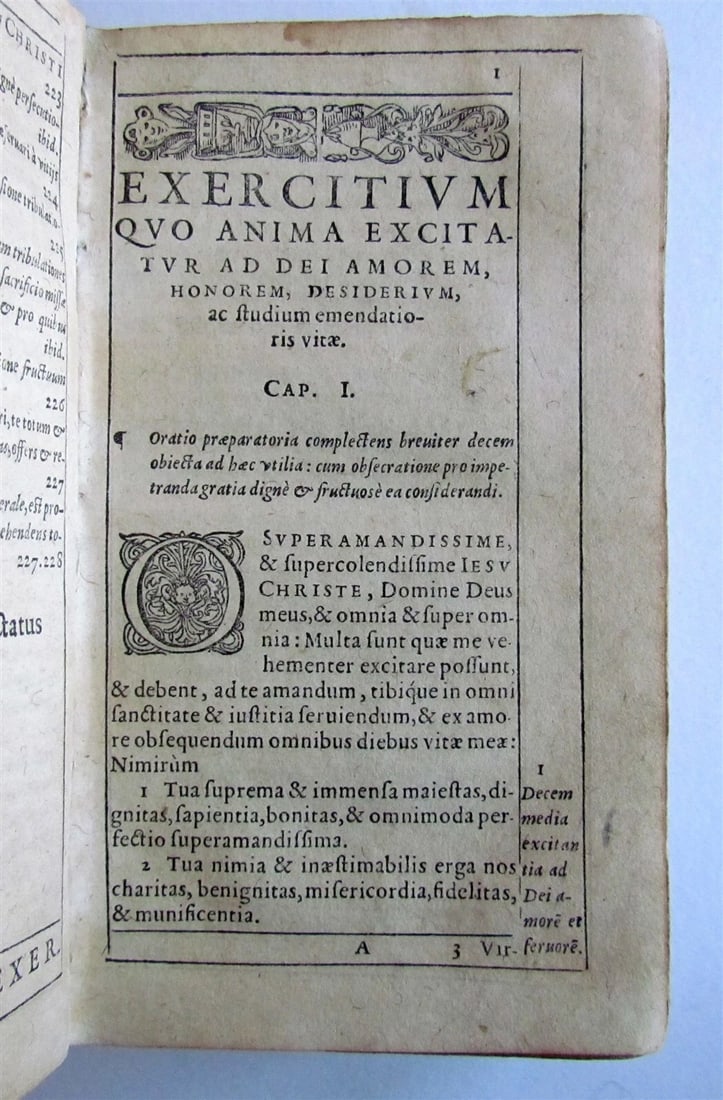 CHRISTI
223
ibid.
224
225
sacrificio missæ
& pro quibus
ibid.
fructuum
226
ri, te totum &
as, offers & re-
227
erale, est pro-
ehendens to-
227.228
ctatus
EXER.
1
EXERCITIVM
QVO ANIMA EXCITA-
TVR AD DEI AMOREM,
HONOREM, DESIDERIVM,
ac studium emendatio-
ris vitæ.
CAP. I.
¶ Oratio præparatoria complectens breuiter decem
obiecta ad hæc vtilia: cum obsecratione pro impe-
tranda gratia dignè & fructuosè ea considerandi.
O SVPERAMANDISSIME,
& supercolendissime IESV
CHRISTE, Domine Deus
meus, & omnia & super om-
nia: Multa sunt quæ me ve-
hementer excitare possunt,
& debent, ad te amandum, tibíque in omni
sanctitate & iustitia seruiendum, & ex amo-
re obsequendum omnibus diebus vitæ meæ:
Nimirùm
1 Tua suprema & immensa maiestas, di-
gnitas, sapientia, bonitas, & omnimoda per-
fectio superamandissima.
2 Tua nimia & inæstimabilis erga nos
charitas, benignitas, misericordia, fidelitas,
& munificentia.
A 3 Vir-
1
Decem
media
excitan
tia ad
Dei a-
morē et
feruorē.